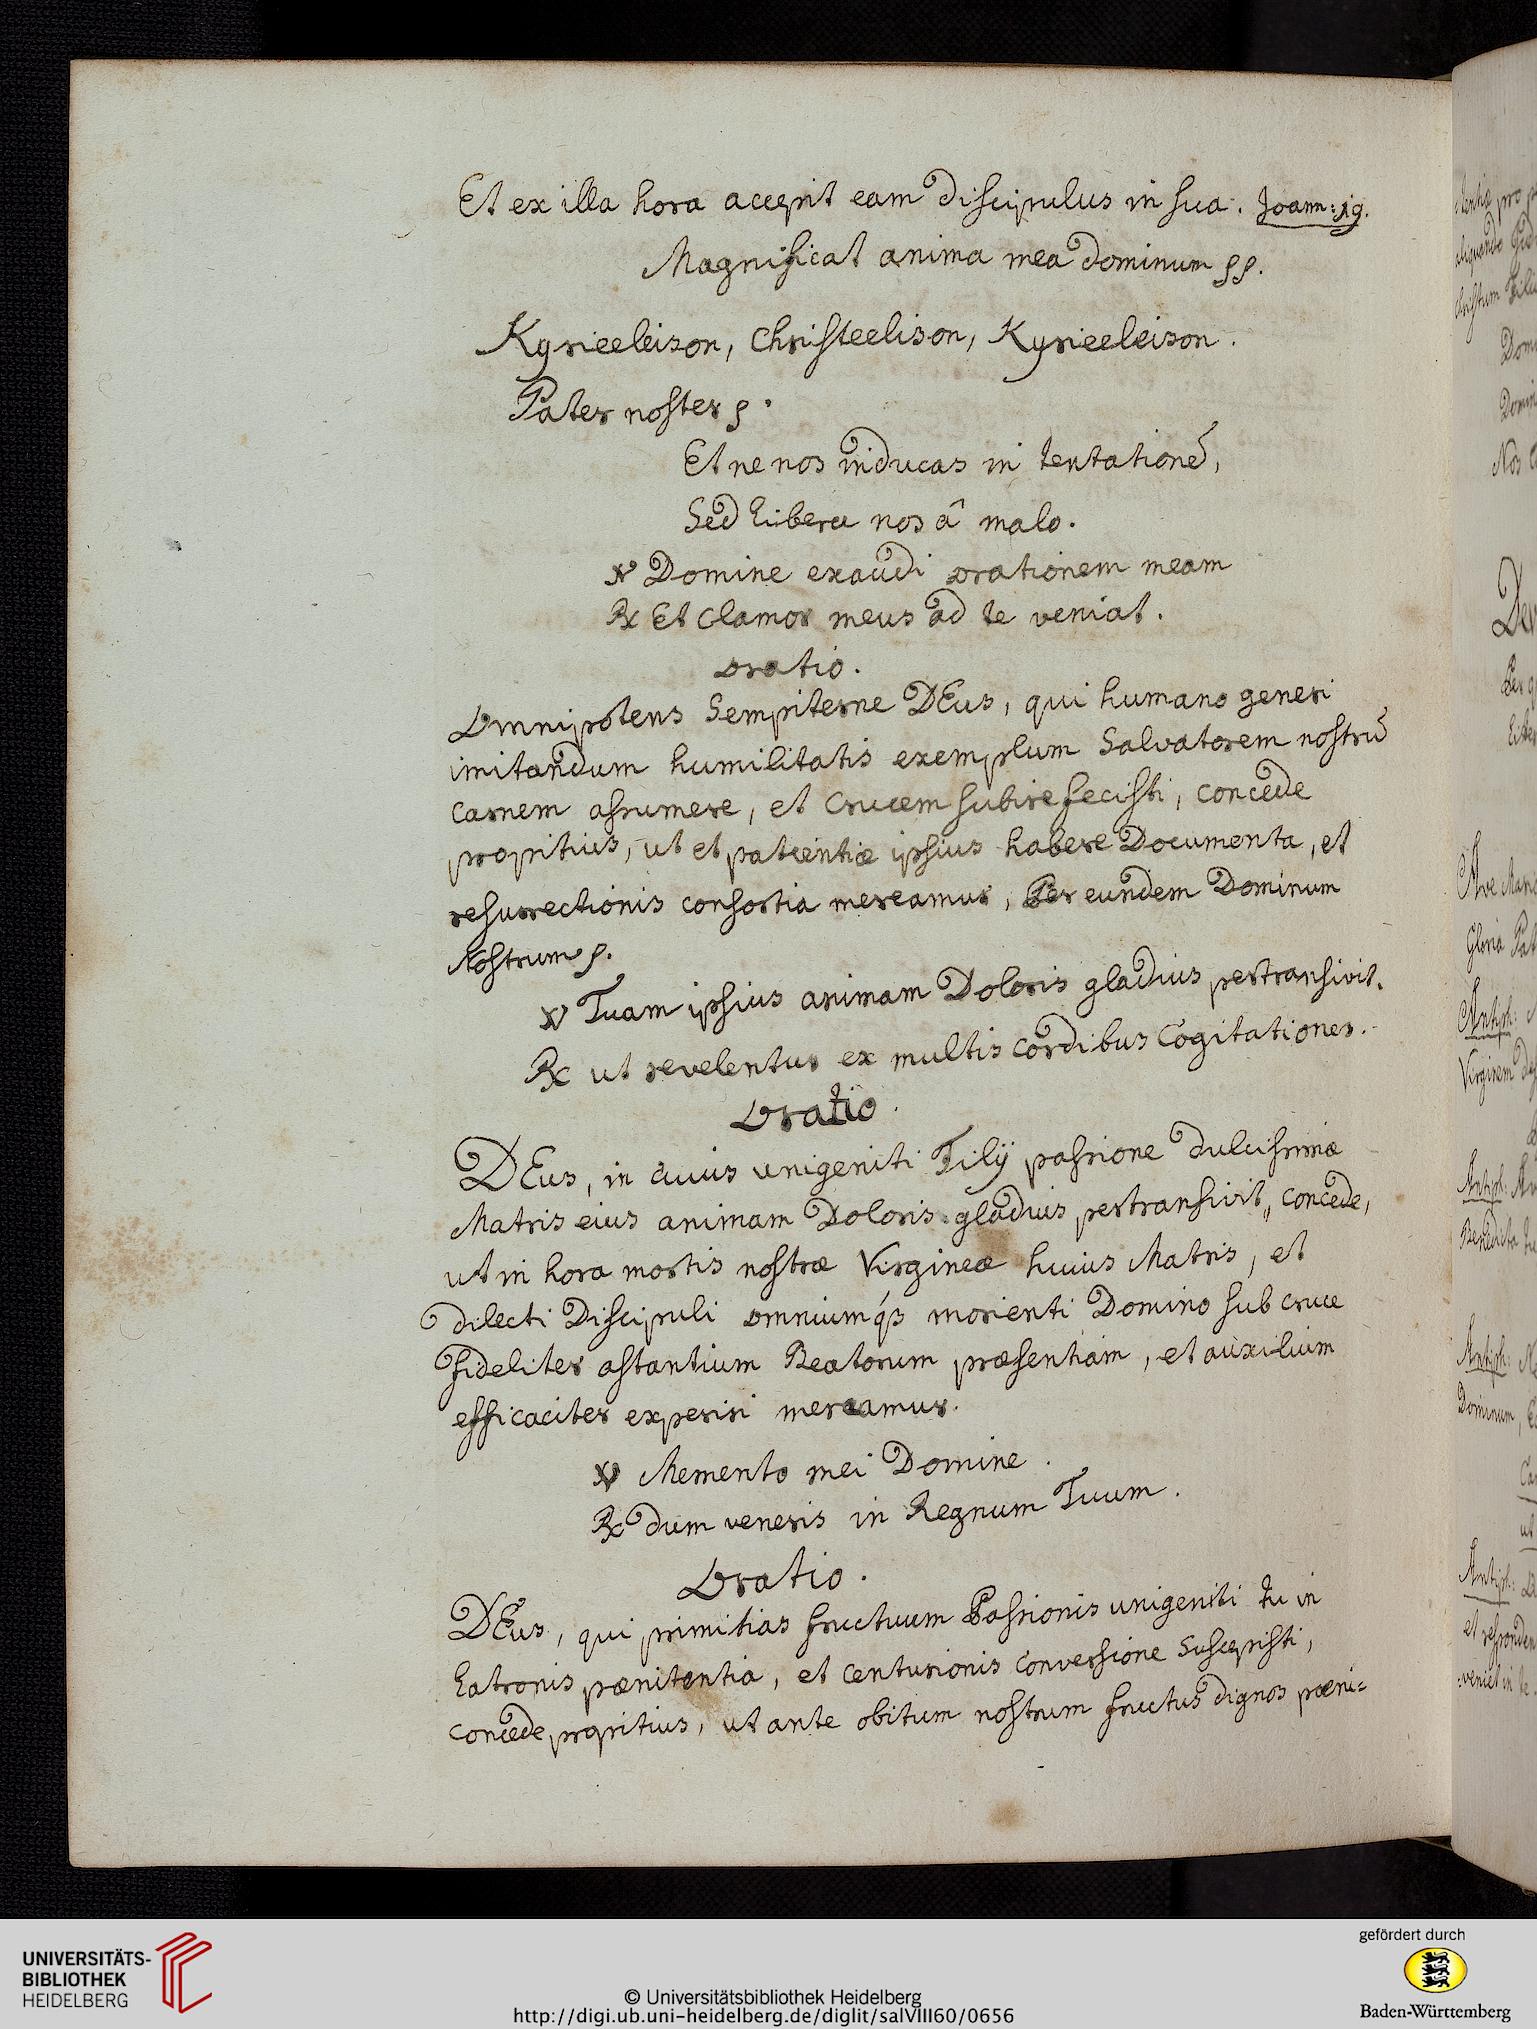 Et ex illa hora accepit eam discipulus in sua. Joann: 19.
Magnificat anima mea dominum pp.
Kyrieeleison, Christeelison, Kyrieeleison.
Pater noster p.
Et ne nos inducas in tentationē,
Sed libera nos â malo.
℣ Domine exaudi orationem meam
℟ Et Clamor meus ad te veniat.
Oratio.
Omnipotens Sempiterne DEus, qui humano generi
imitandum humilitatis exemplum Salvatorem nostrū
carnem assumere, et Crucem subire fecisti, concede
propitius, ut et patientiæ ipsius habere Documenta, et
resurrectionis consortia mereamur, Per eundem Dominum
Nostrum p.
℣ Tuam ipsius animam Doloris gladius pertransivit.
℟ ut revelentur ex multis cordibus Cogitationes.
Oratio.
DEus, in cuius unigeniti Filij passione dulcissimæ
Matris eius animam Doloris gladius pertransivit, concede,
ut in hora mortis nostræ Virgineæ huius Matris, et
dilecti Discipuli omniumq́ß morienti Domino sub cruce
fideliter astantium Beatorum præsentiam, et auxilium
efficaciter experiri mereamur.
℣ Memento mei Domine.
℟ dum veneris in Regnum Tuum.
Oratio.
DEus, qui primitias fructuum Passionis unigeniti tu in
Latronis pœnitentia, et Centurionis Conversione Suscepisti,
concede propitius, ut ante obitum nostrum fructus dignos pœni=
UNIVERSITÄTS-
BIBLIOTHEK
HEIDELBERG
© Universitätsbibliothek Heidelberg
http://digi.ub.uni-heidelberg.de/diglit/salVIII60/0656
gefördert durch
Baden-Württemberg